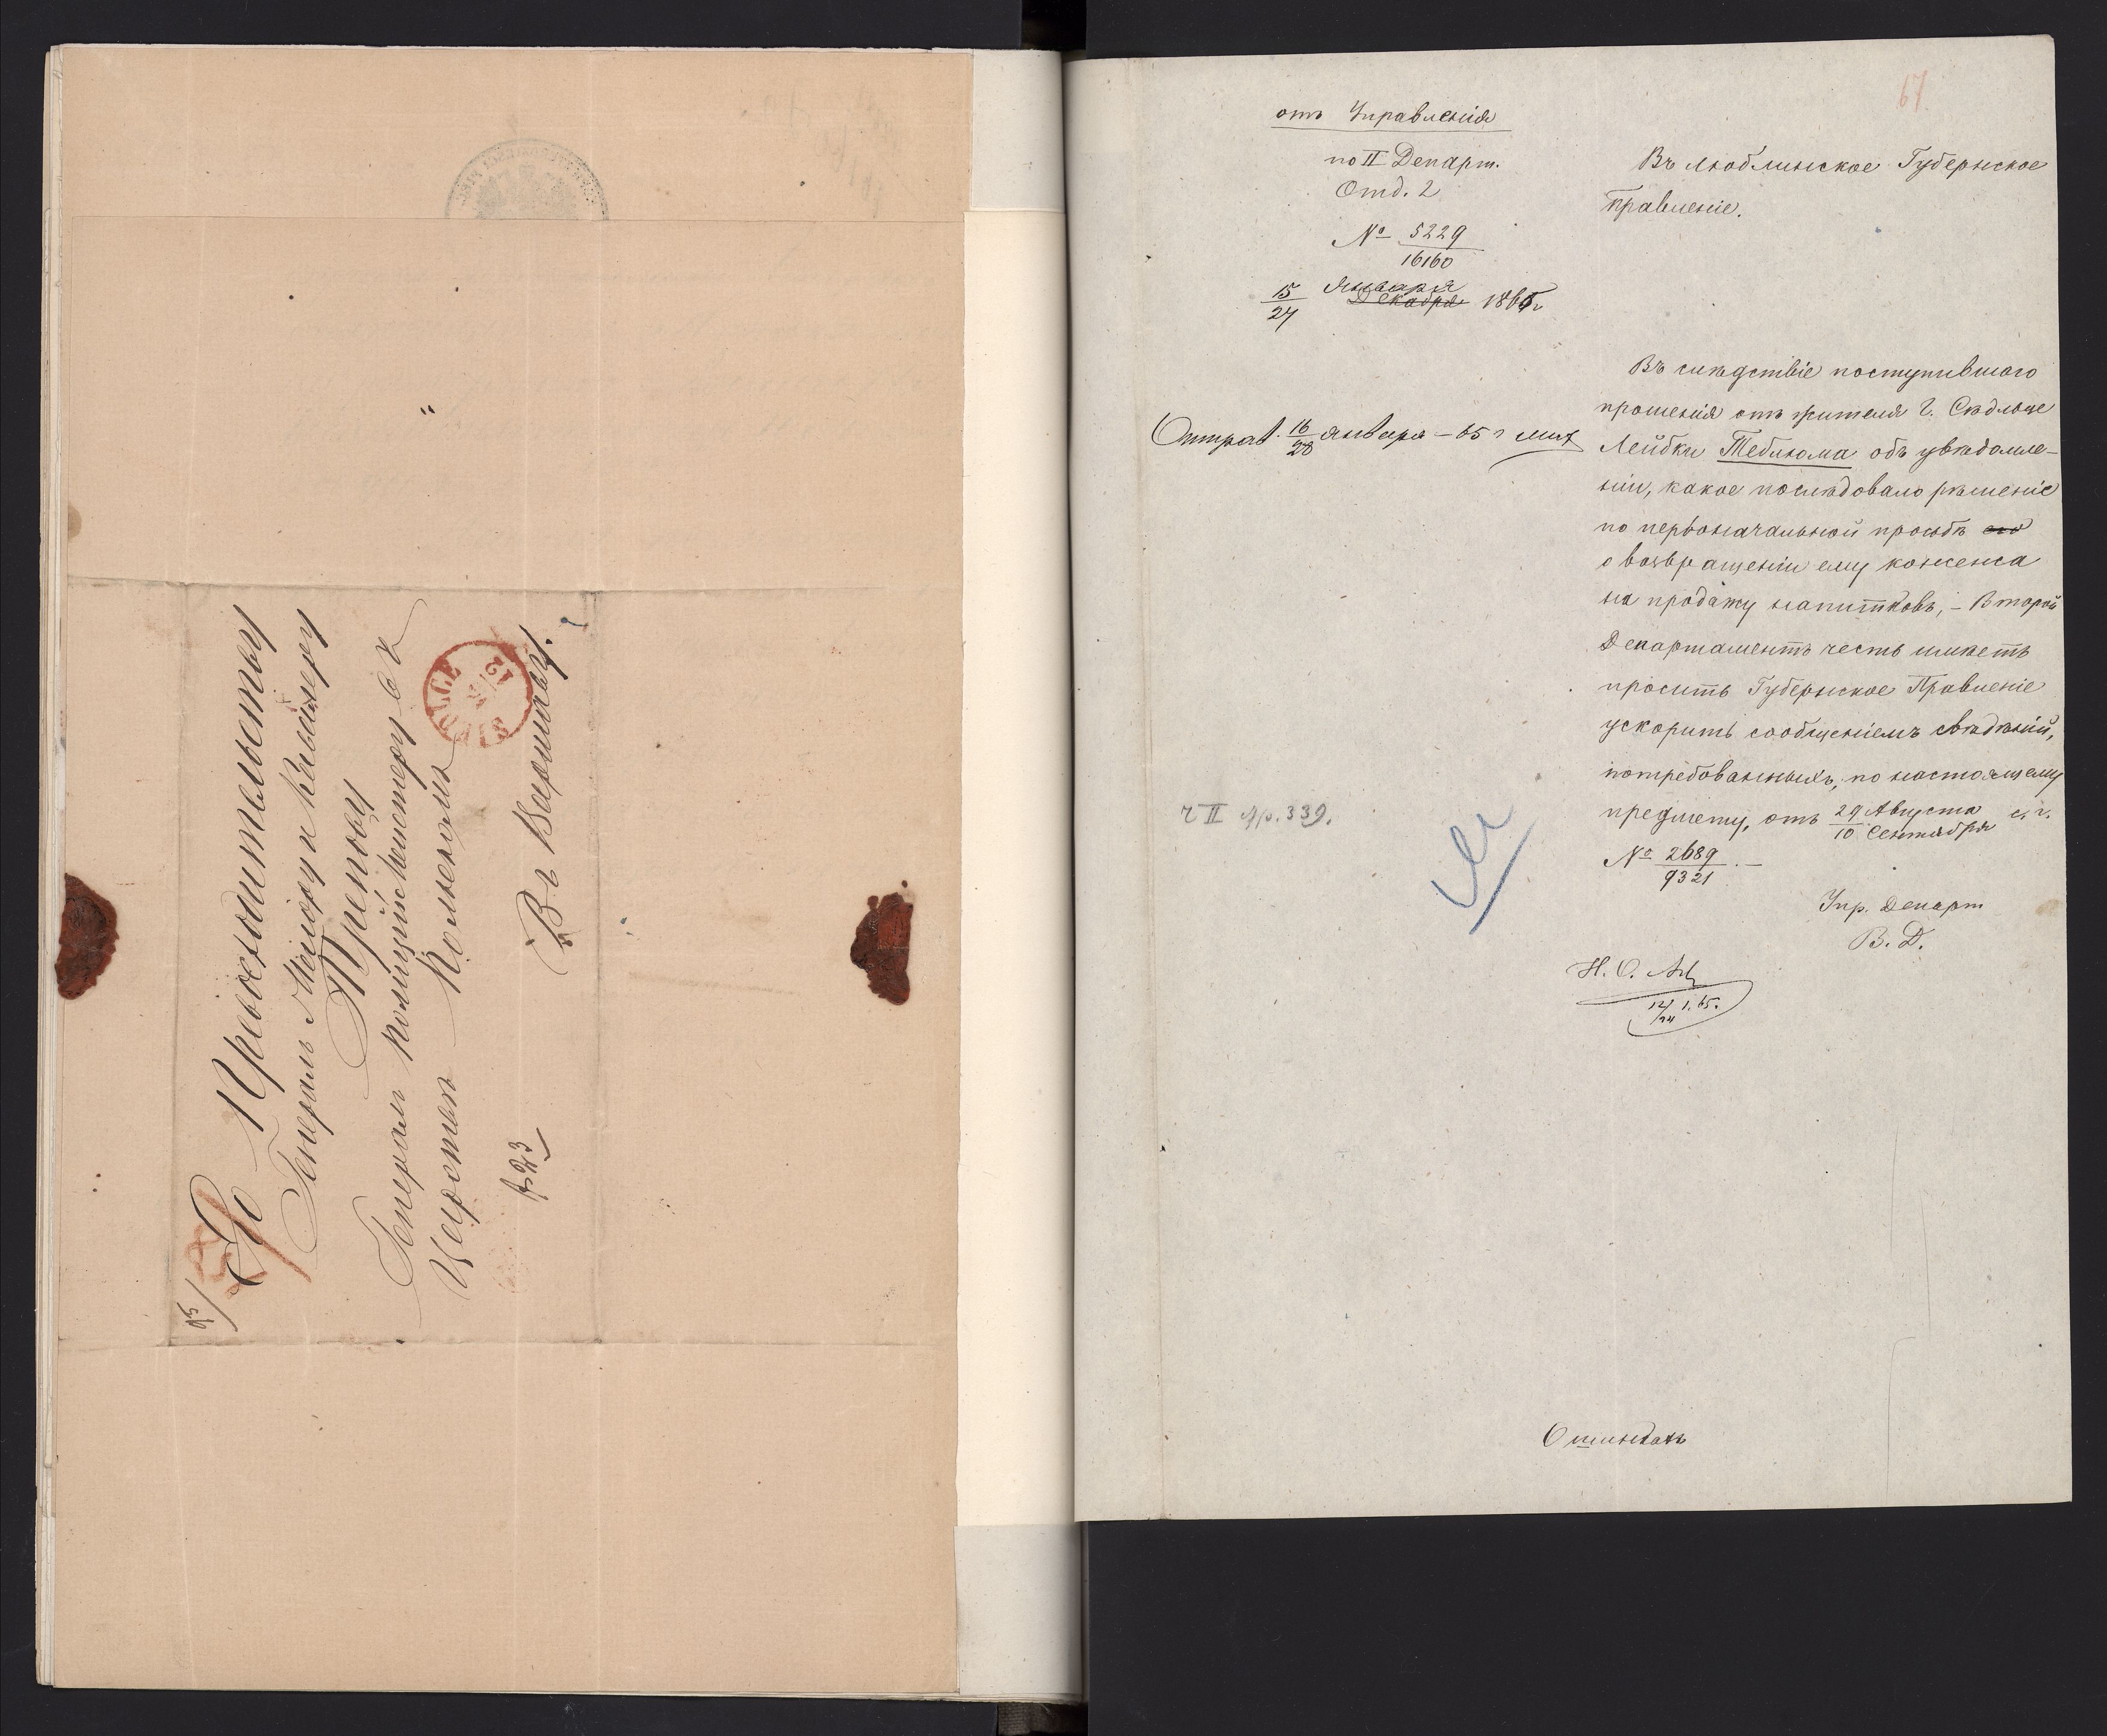 Его Превосходительству
Генералъ Маіору и Кавалеру
Трепову
Генералъ Полиціймейстеру въ
Царствѣ Польскомъ
Въ Варшаву.
67.
отъ Управленія
по II Департ.
Отд. 2
№ 5229
16160
Января
15 Декабря 1865 г
27
Въ Люблинское Губернское
Правленіе.
Отправ. 16 Января – 65 г
28
Въ слѣдствіе поступившаго
прошенія отъ жителя г. Сѣдльце
Лейбки Теблюма объ увѣдомле-
ніи, какое послѣдовало рѣшеніе
по первоначальной прозьбѣ его
о возвращеніи ему консенса
на продажу напитковъ, – Второй
Департаментъ честь имѣетъ
просить Губернское Правленіе
ускорить сообщеніемъ свѣдѣній,
потребованныхъ, по настоящему
предмету, отъ 29 Августа с. г.
10 Сентября
№ 2689 . –
9321
ч II стр. 339.
Упр. Департ
В. Д.
Н. О.
12 1. 65.
24